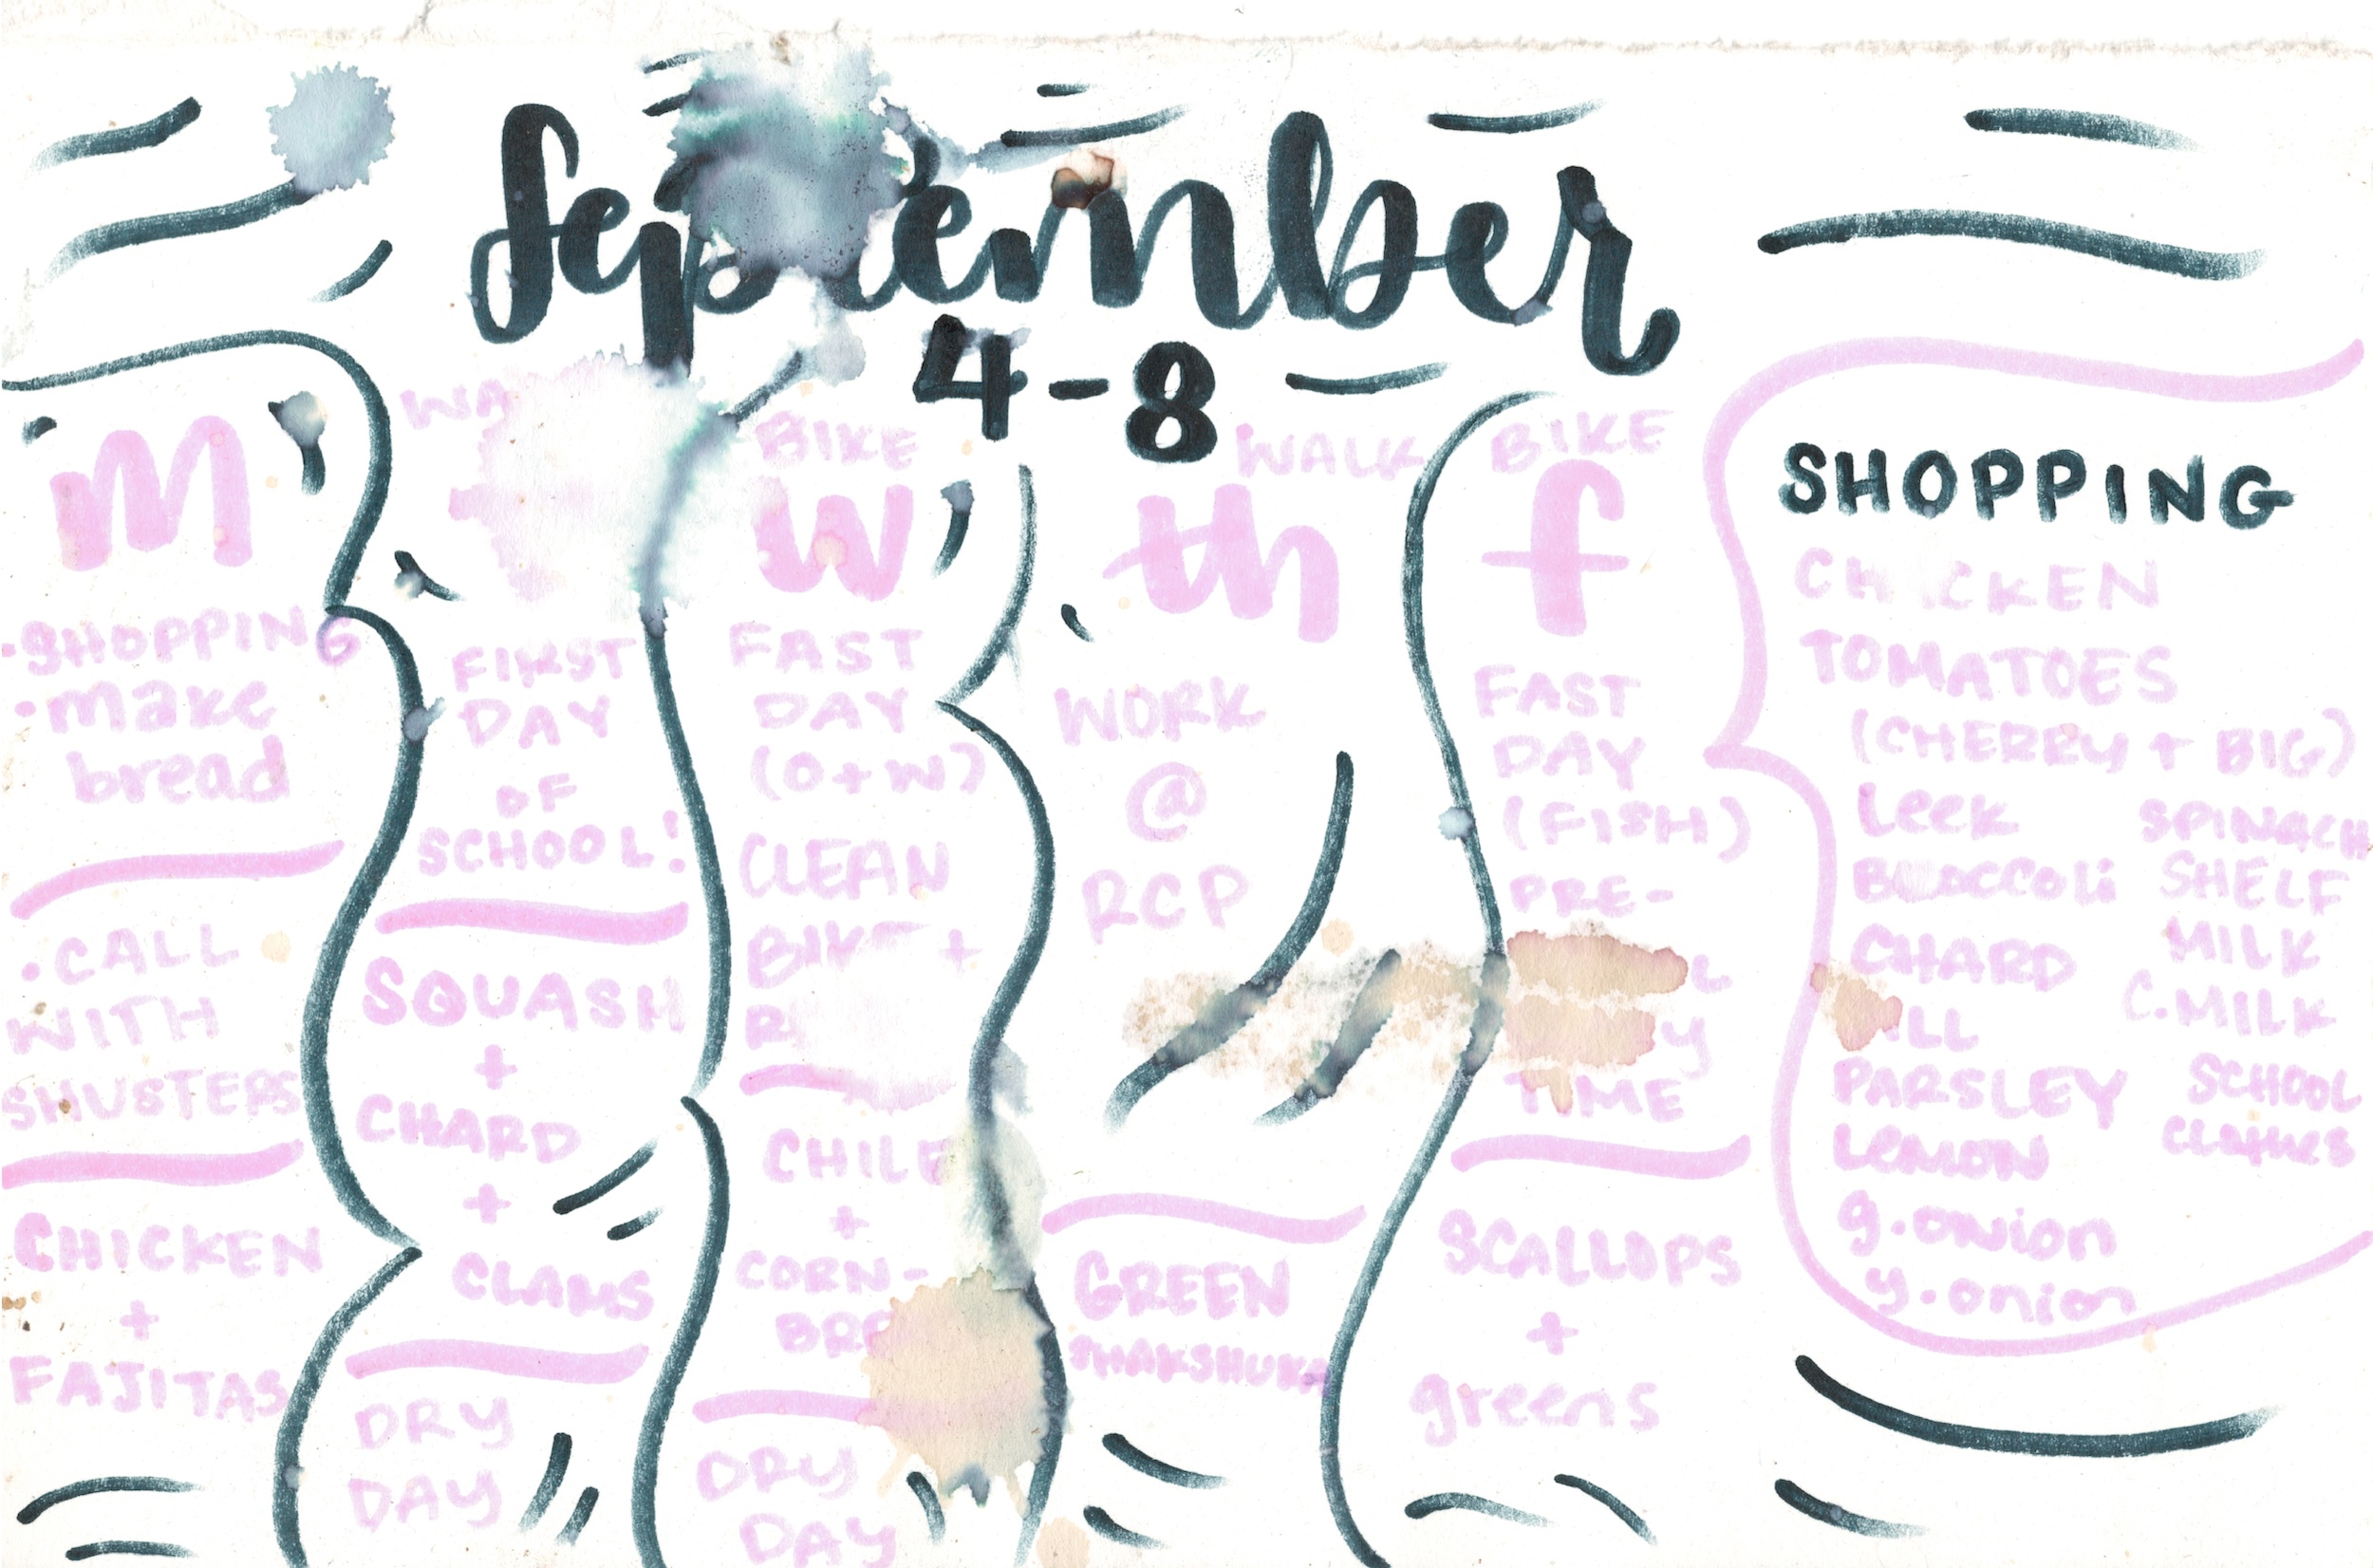 September
4-8
M
·SHOPPING
·make
bread
·CALL
WITH
SHUSTERS
CHICKEN
+
FAJITAS
FIRST
DAY
OF
SCHOOL!
SQUASH
+
CHARD
+
CLAMS
DRY
DAY
BIKE
W
FAST
DAY
(O+W)
CLEAN
+
CHILE
+
CORN-
DRY
DAY
WALK
th
WORK
@
RCP
GREEN
SHAKSHUKA
BIKE
f
FAST
DAY
(FISH)
PRE-
TIME
SCALLOPS
+
greens
SHOPPING
CHICKEN
TOMATOES
(CHERRY + BIG)
Leek
BROCCOLi
CHARD
PARSLEY
LEMON
g.onion
y.onion
SPINACH
SHELF
MILK
C.MILK
SCHOOL
CLOTHES